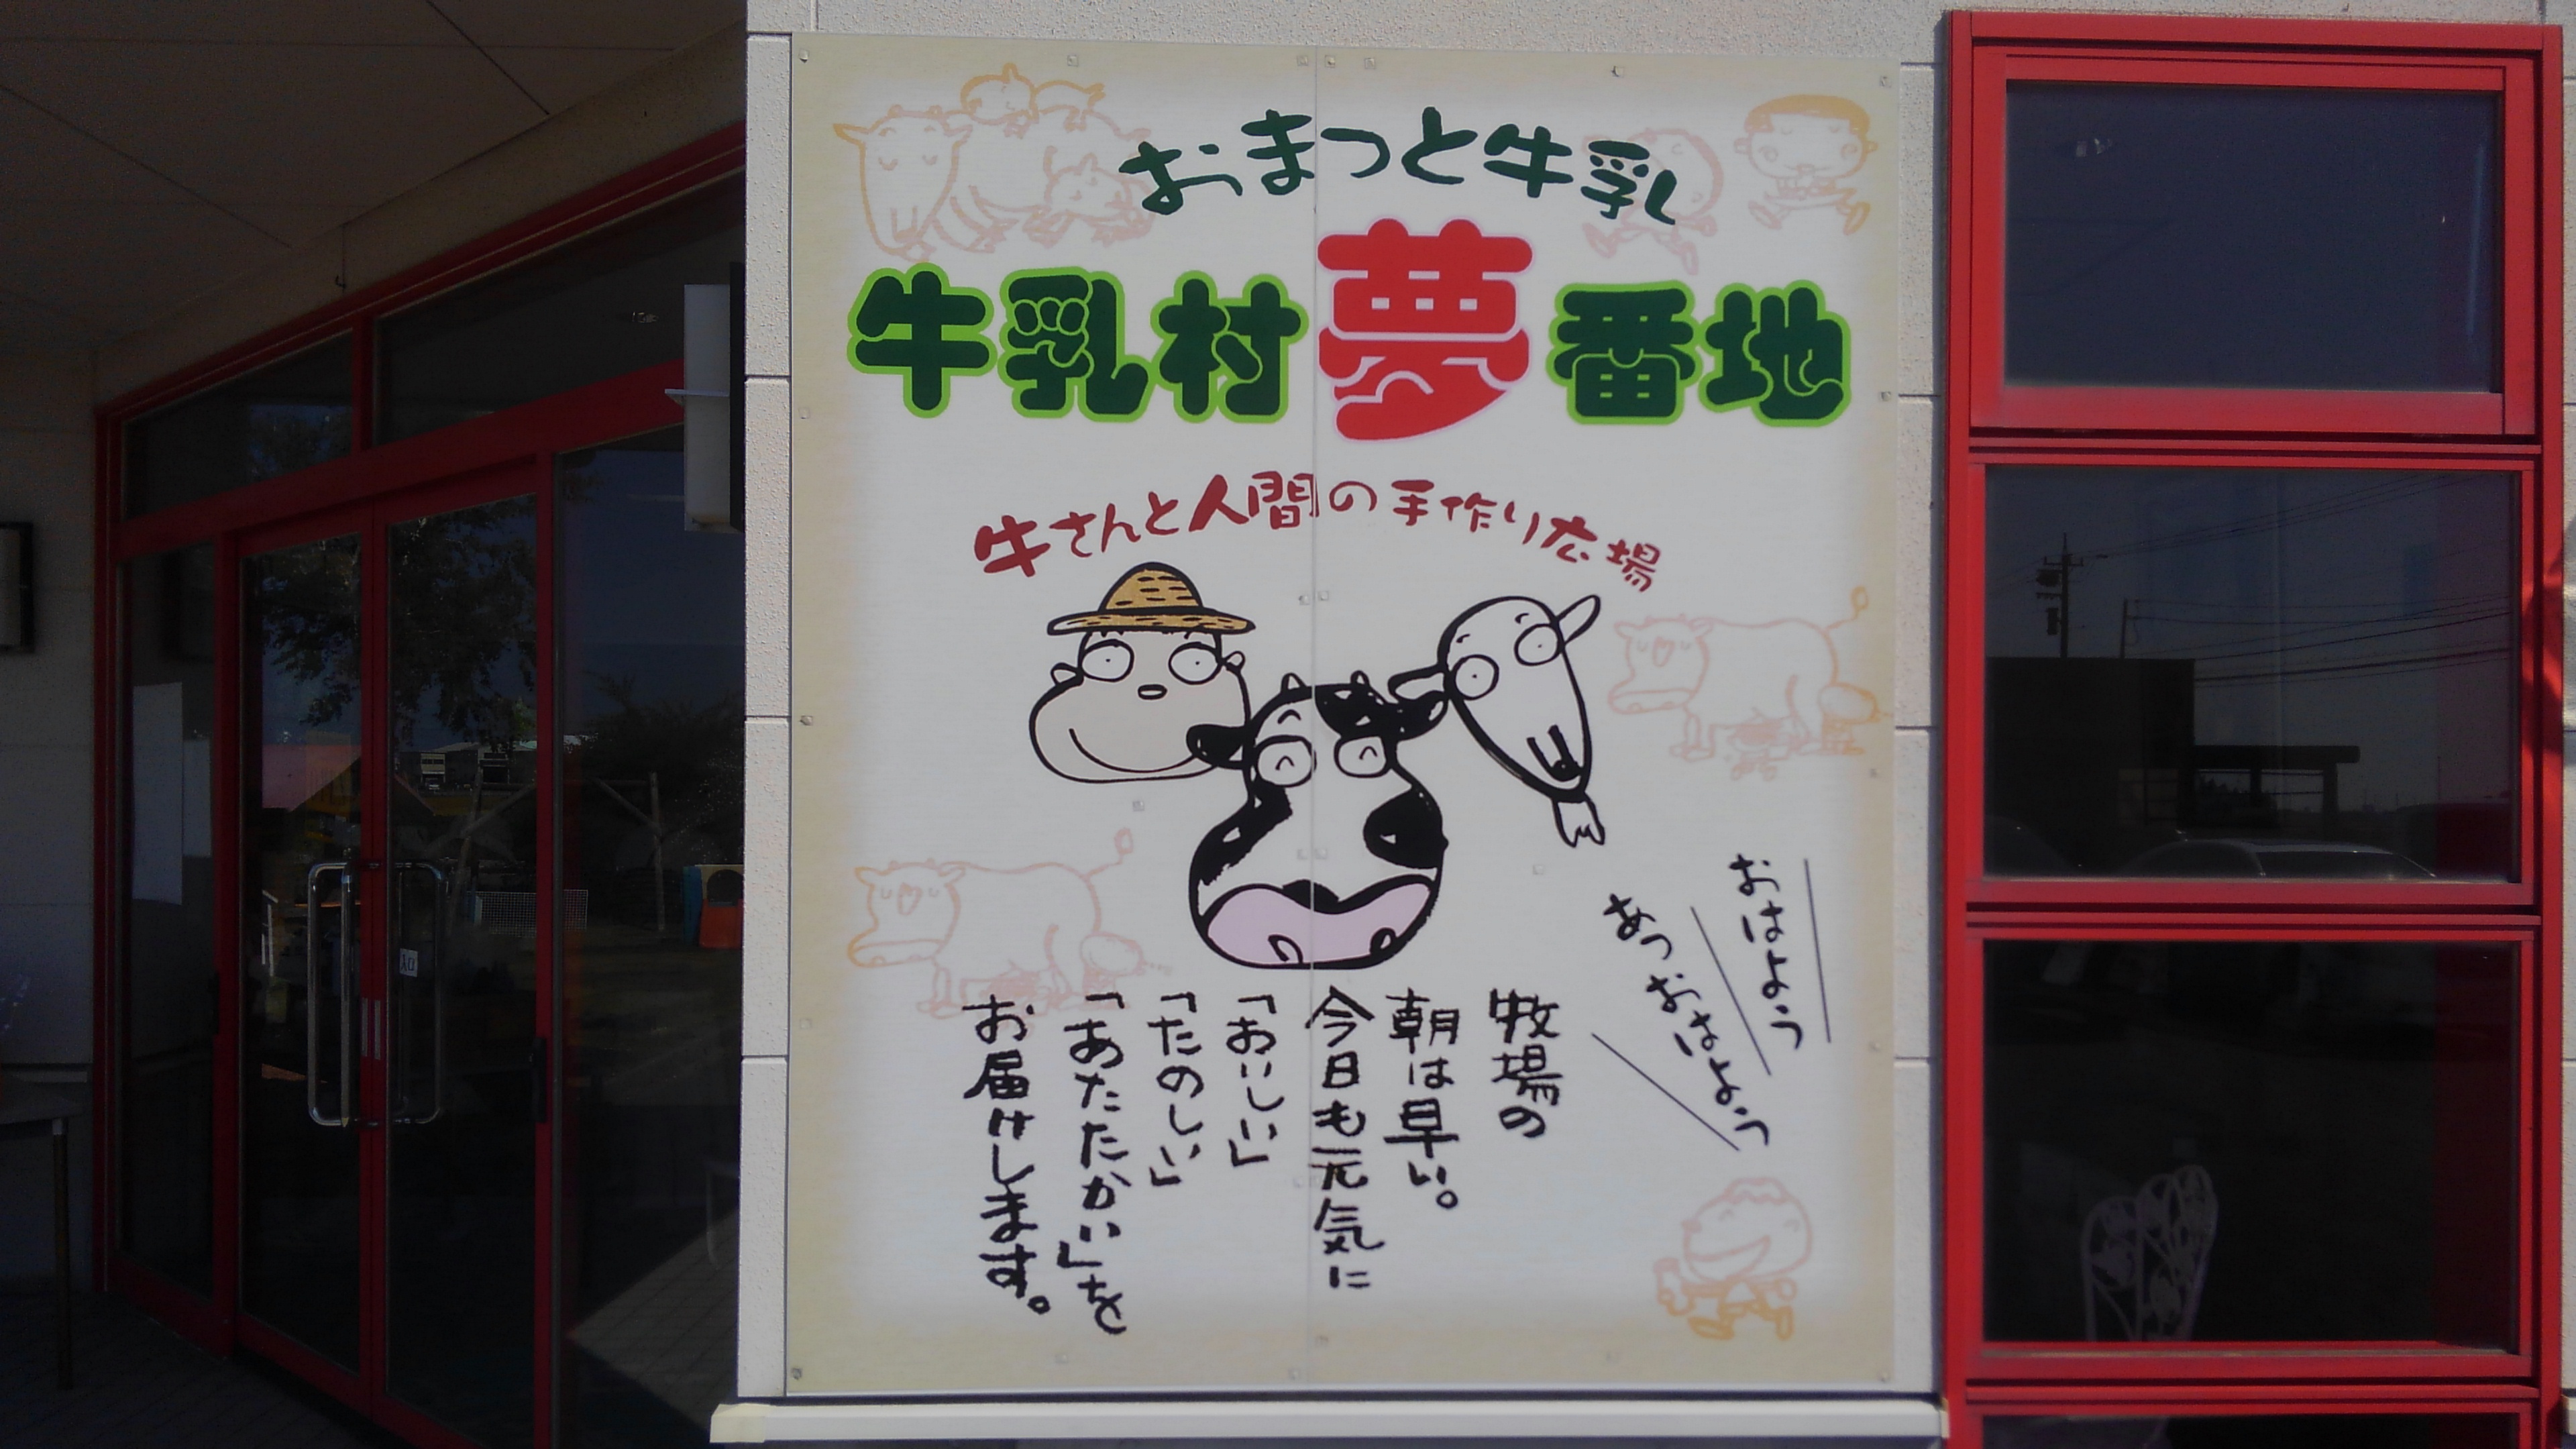 おまっと牛乳
牛乳村夢番地
牛さんと人間の手作り広場
おはよう
あっおはよう
牧場の
朝は早い。
今日も元気に
「おいしい」
「たのしい」
「あたたかい」を
お届けします。